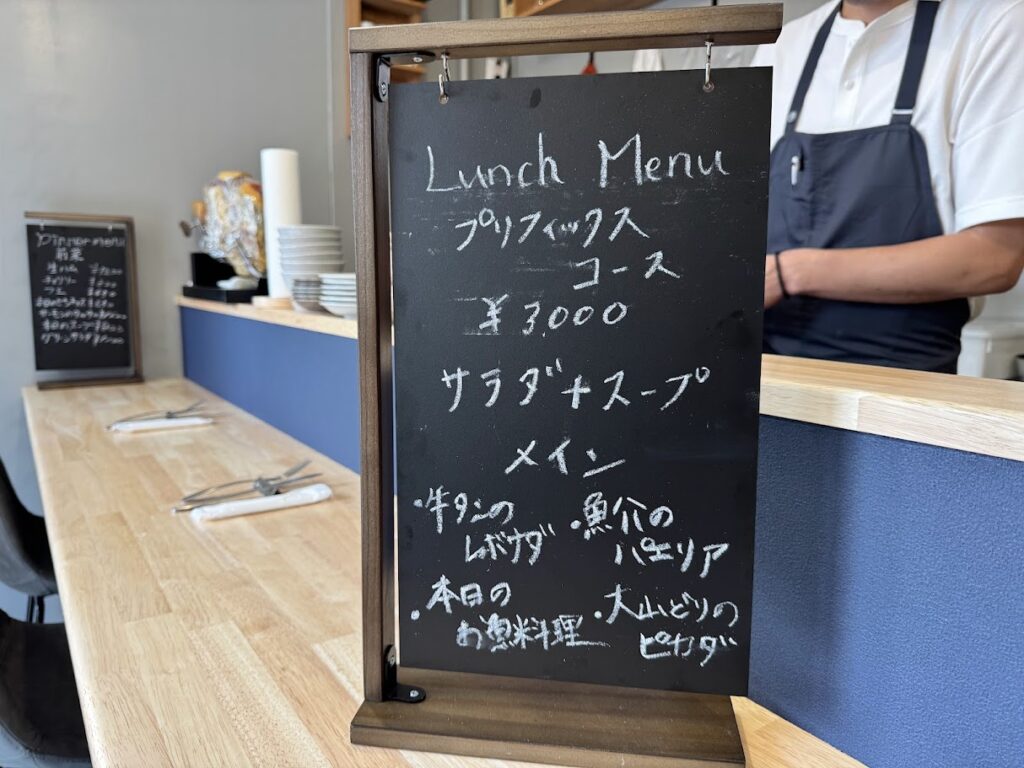 Lunch Menu
プリフィックス
コース
¥3,000
サラダ+スープ
メイン
・牛タンの
レボサダ
・魚介の
パエリア
・本日の
お魚料理
・大山どりの
ピカダ
Dinner menu
前菜
生ハム